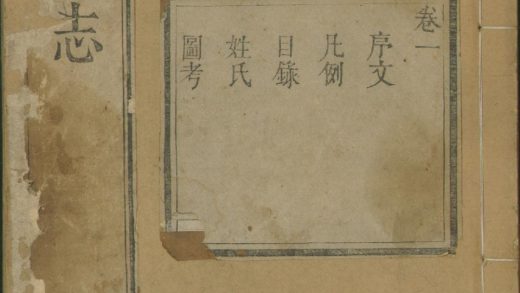 卷一
序文
凡例
目錄
姓氏
圖考
志